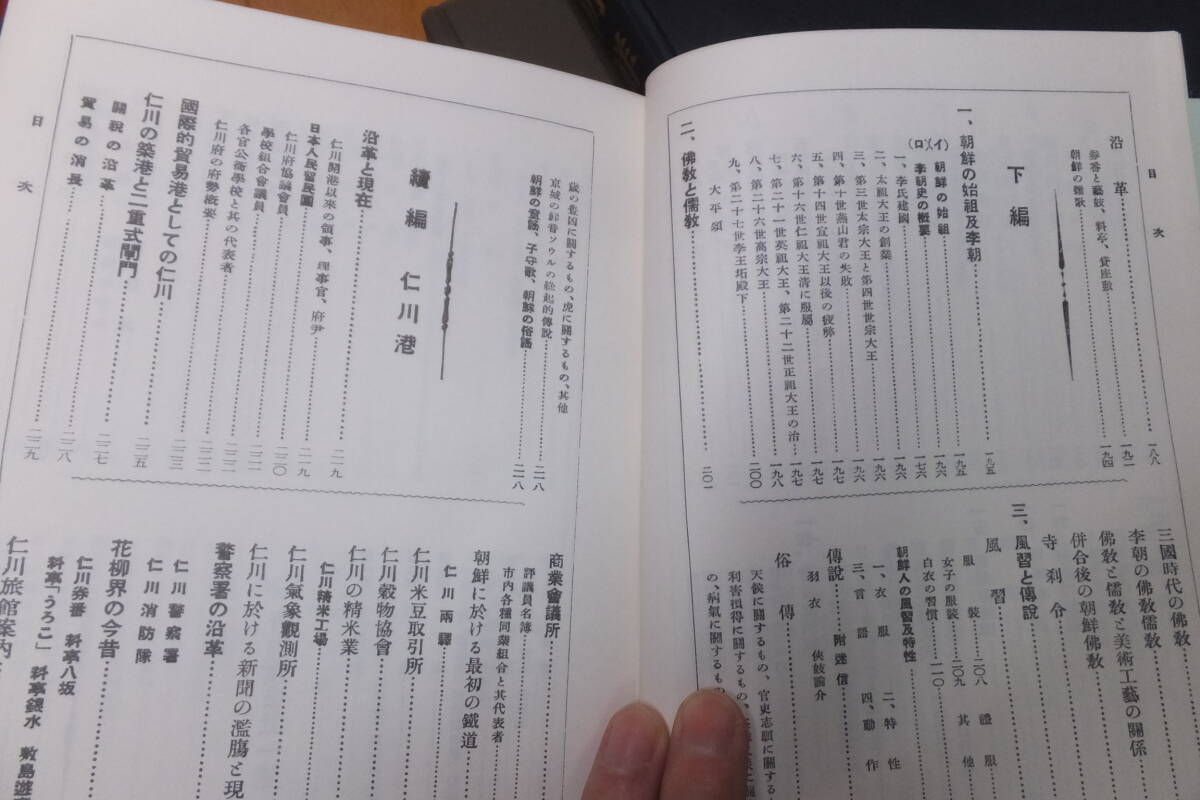 目次
沿革……一八八
券番と藝妓、料亭、貸座敷……一九二
朝鮮の雜歌……一九四
下編
一、朝鮮の始祖及李朝……一九五
(イ) 朝鮮の始祖……一九五
(ロ) 李朝史の概要……一七六
一、李氏建國……一九六
二、太祖大王の創業……一九六
三、第三世太宗大王と第四世世宗大王……一九六
四、第十世燕山君の失敗……一九七
五、第十四世宣祖大王以後の疲弊……一九七
六、第十六世仁祖大王清に服屬……一九七
七、第二十一世英祖大王、第二十二世正祖大王の治……一九八
八、第二十六世高宗大王……二〇〇
九、第二十七世李王坧殿下
大平頌
二、佛敎と儒敎……二〇一
三國時代の佛敎
李朝の佛敎儒敎
佛敎と儒敎と美術工藝の關係
併合後の朝鮮佛敎
寺刹令
三、風習と傳説
風習
服裝……二〇八 禮服
女子の服裝……二〇九 其他
白衣の習慣……二一〇
朝鮮人の風習及特性
一、衣服 二、特性
三、言語 四、動作
傳説 附迷信
羽衣 俠妓論介
俗傳
天候に關するもの、官吏志願に關する
利害損得に關するもの、
の、病氣に關するもの
歳の豊凶に關するもの、虎に關するもの、其他
京城の歸音ソウルの縁起的傳説
朝鮮の童謠、子守歌、朝鮮の俗謠……二一八
續編 仁川港
沿革と現在……二一九
仁川開港以來の領事、理事官、府尹
日本人民留民團……二一九
仁川府協議會員……二二〇
學校組合會議員……二二一
各官公衙學校と其の代表者……二二二
仁川府の府勢概要……二二二
國際的貿易港としての仁川……二二三
仁川の築港と二重式閘門……二二五
關稅の沿革……二二七
貿易の消長……二二八
……二二九
商業會議所
評議員名簿
市内各種同業組合と其代表者
朝鮮に於ける最初の鐵道
仁川兩驛
仁川米豆取引所
仁川穀物協會
仁川の精米業
仁川精米工場
仁川氣象觀測所
仁川に於ける新聞の濫觴と現
警察署の沿革
仁川警察署
仁川消防隊
花柳界の今昔
仁川券番 料亭八坂
料亭「うろこ」 料亭銀水 敷島遊
仁川旅館案内
目次